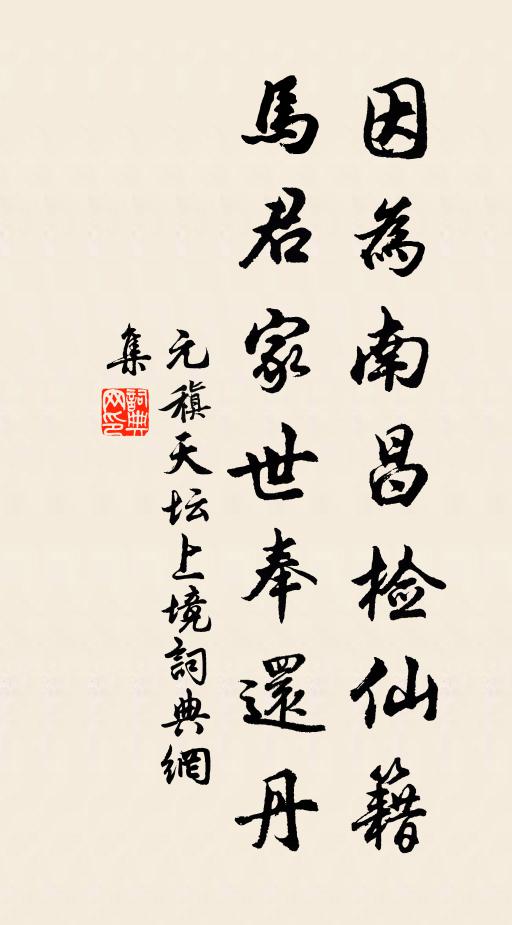 因為南昌检仙籍
馬君家世奉還丹
元稹天坛上境詞典網
集
詞典
网印